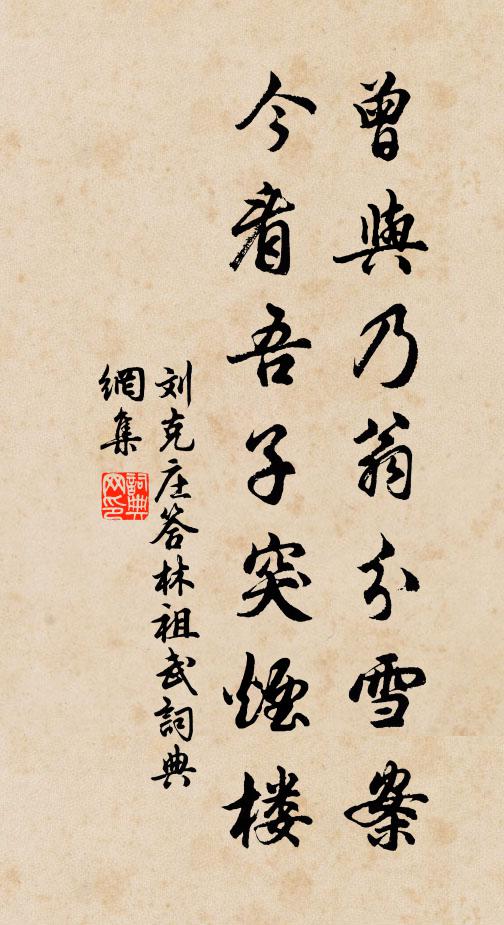 曾與乃翁分雪案
今看吾子突煙楼
刘克庄答林祖武詞典
網集
詞典網印